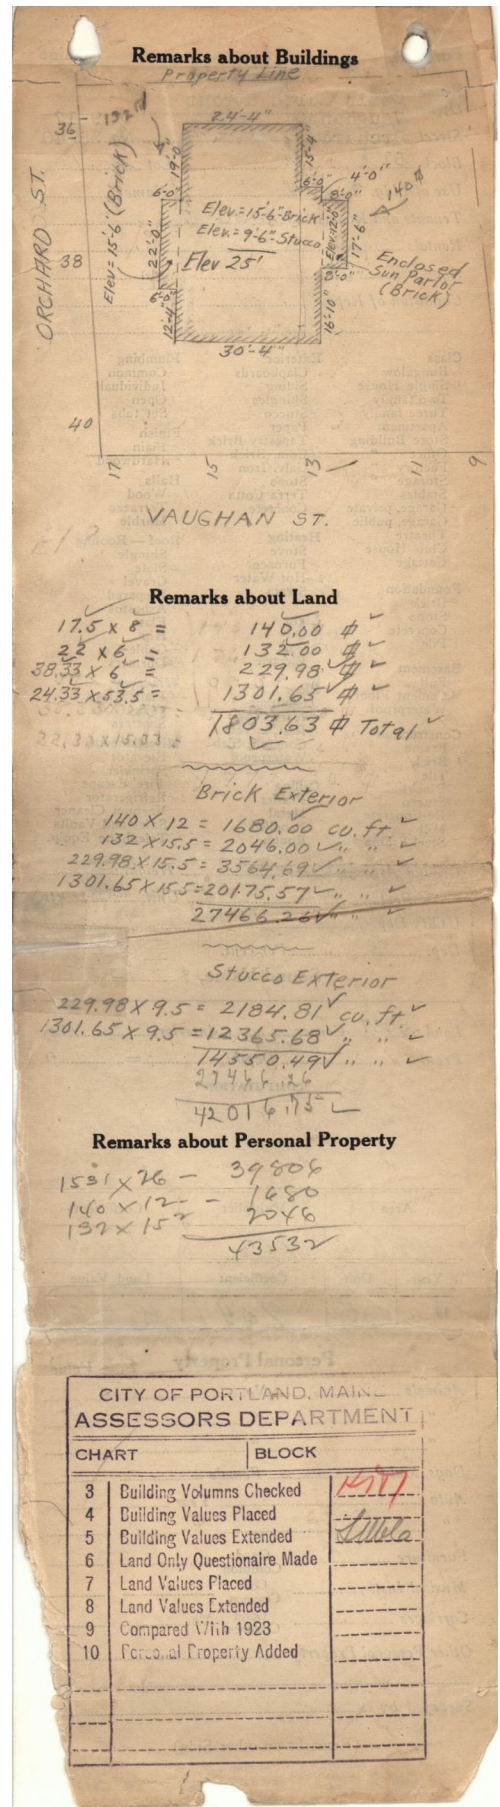 Remarks about Buildings
Property Line
24'-4"
36
132⌀
19'-0"
15'-4"
ORCHARD ST.
Elev=15'-6" (Brick)
6'-0"
6'-0"
4'-0"
8'-0"
140⌀
Elev.=15'-6"-Brick
Elev.=9'-6"-Stucco
Elev 25'
22'-0"
Elev=12'-0"
17'-6"
Enclosed
Sun Parlor
(Brick)
38
6'-0"
8'-0"
12'-4"
16'-10"
30'-4"
40
17 15 13 11 9
VAUGHAN ST.
Remarks about Land
17.5 x 8 = 140.00 ⌀
22 x 6 = 132.00 ⌀
38.33 x 6 = 229.98 ⌀
24.33 x 53.5 = 1301.65 ⌀
1803.63 ⌀ Total
Brick Exterior
140 x 12 = 1680.00 cu. ft.
132 x 15.5 = 2046.00 " "
229.98 x 15.5 = 3564.69 " "
1301.65 x 15.5 = 20175.57 " "
27466.26 " "
Stucco Exterior
229.98 x 9.5 = 2184.81 cu. ft.
1301.65 x 9.5 = 12365.68 " "
14550.49 " "
27466.26
42016.75
Remarks about Personal Property
1531 x 26 — 39806
140 x 12 — 1680
132 x 15½ 2046
43532
CITY OF PORTLAND, MAINE
ASSESSORS DEPARTMENT
CHART BLOCK
3 Building Volumns Checked
4 Building Values Placed
5 Building Values Extended
6 Land Only Questionaire Made
7 Land Values Placed
8 Land Values Extended
9 Compared With 1923
10 Personal Property Added